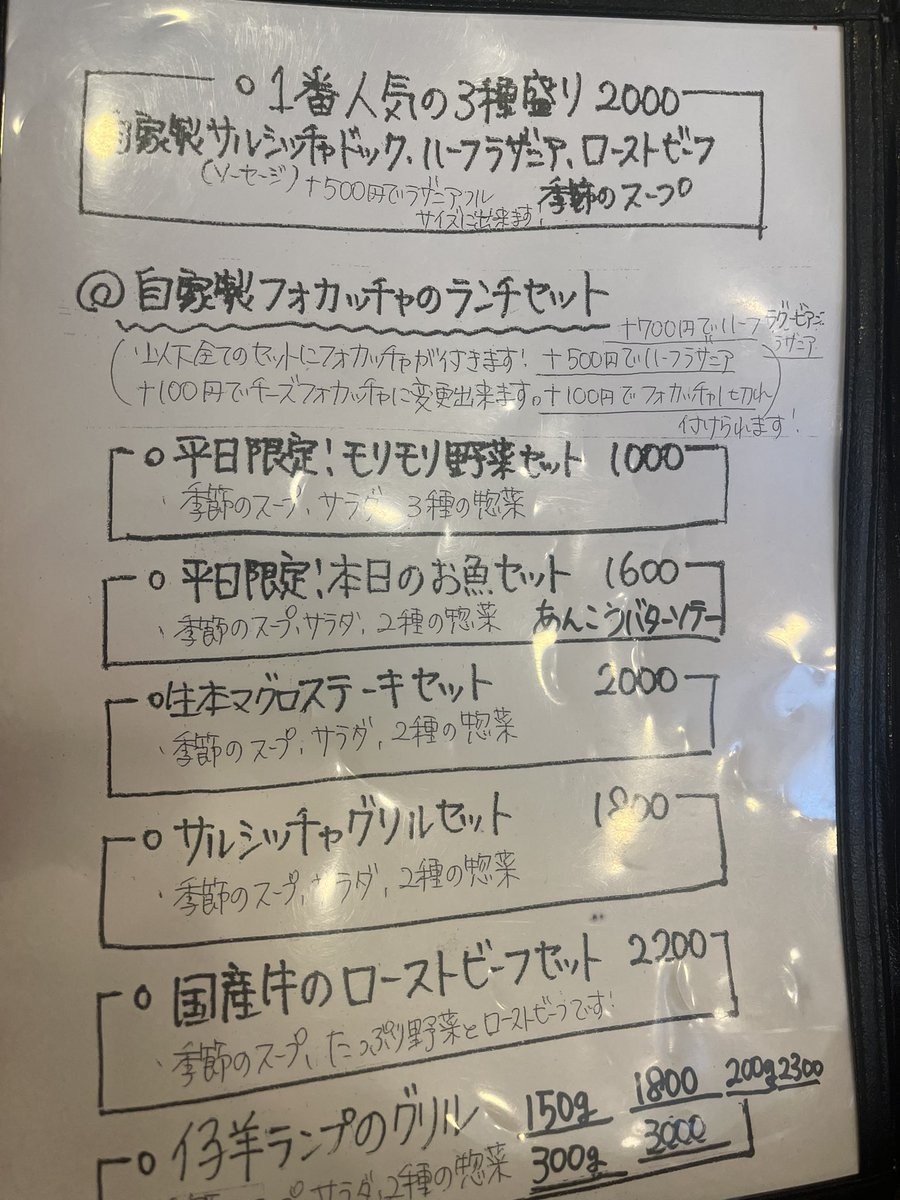 ○ 1番人気の3種盛り 2000
自家製サルシッチャドック、ハーフラザニア、ローストビーフ
(ソーセージ) +500円でラザニアフル 季節のスープ
サイズに出来ます!
@ 自家製フォカッチャのランチセット
+700円でハーフ ラグービアンコ
ラザニア
(以下全てのセットにフォカッチャが付きます! +500円でハーフラザニア
+100円でチーズフォカッチャに変更出来ます。+100円でフォカッチャ1切れ)
付けられます!
○ 平日限定!モリモリ野菜セット 1000
・季節のスープ、サラダ、3種の惣菜
○ 平日限定!本日のお魚セット 1600
・季節のスープ、サラダ、2種の惣菜 あんこうバターソテー
○生本マグロステーキセット 2000
・季節のスープ、サラダ、2種の惣菜
○ サルシッチャグリルセット 1800
・季節のスープ、サラダ、2種の惣菜
○ 国産牛のローストビーフセット 2200
・季節のスープ、たっぷり野菜とローストビーフです!
○ 仔羊ランプのグリル 150g 1800 200g 2300
300g 3000
スープ、サラダ、2種の惣菜